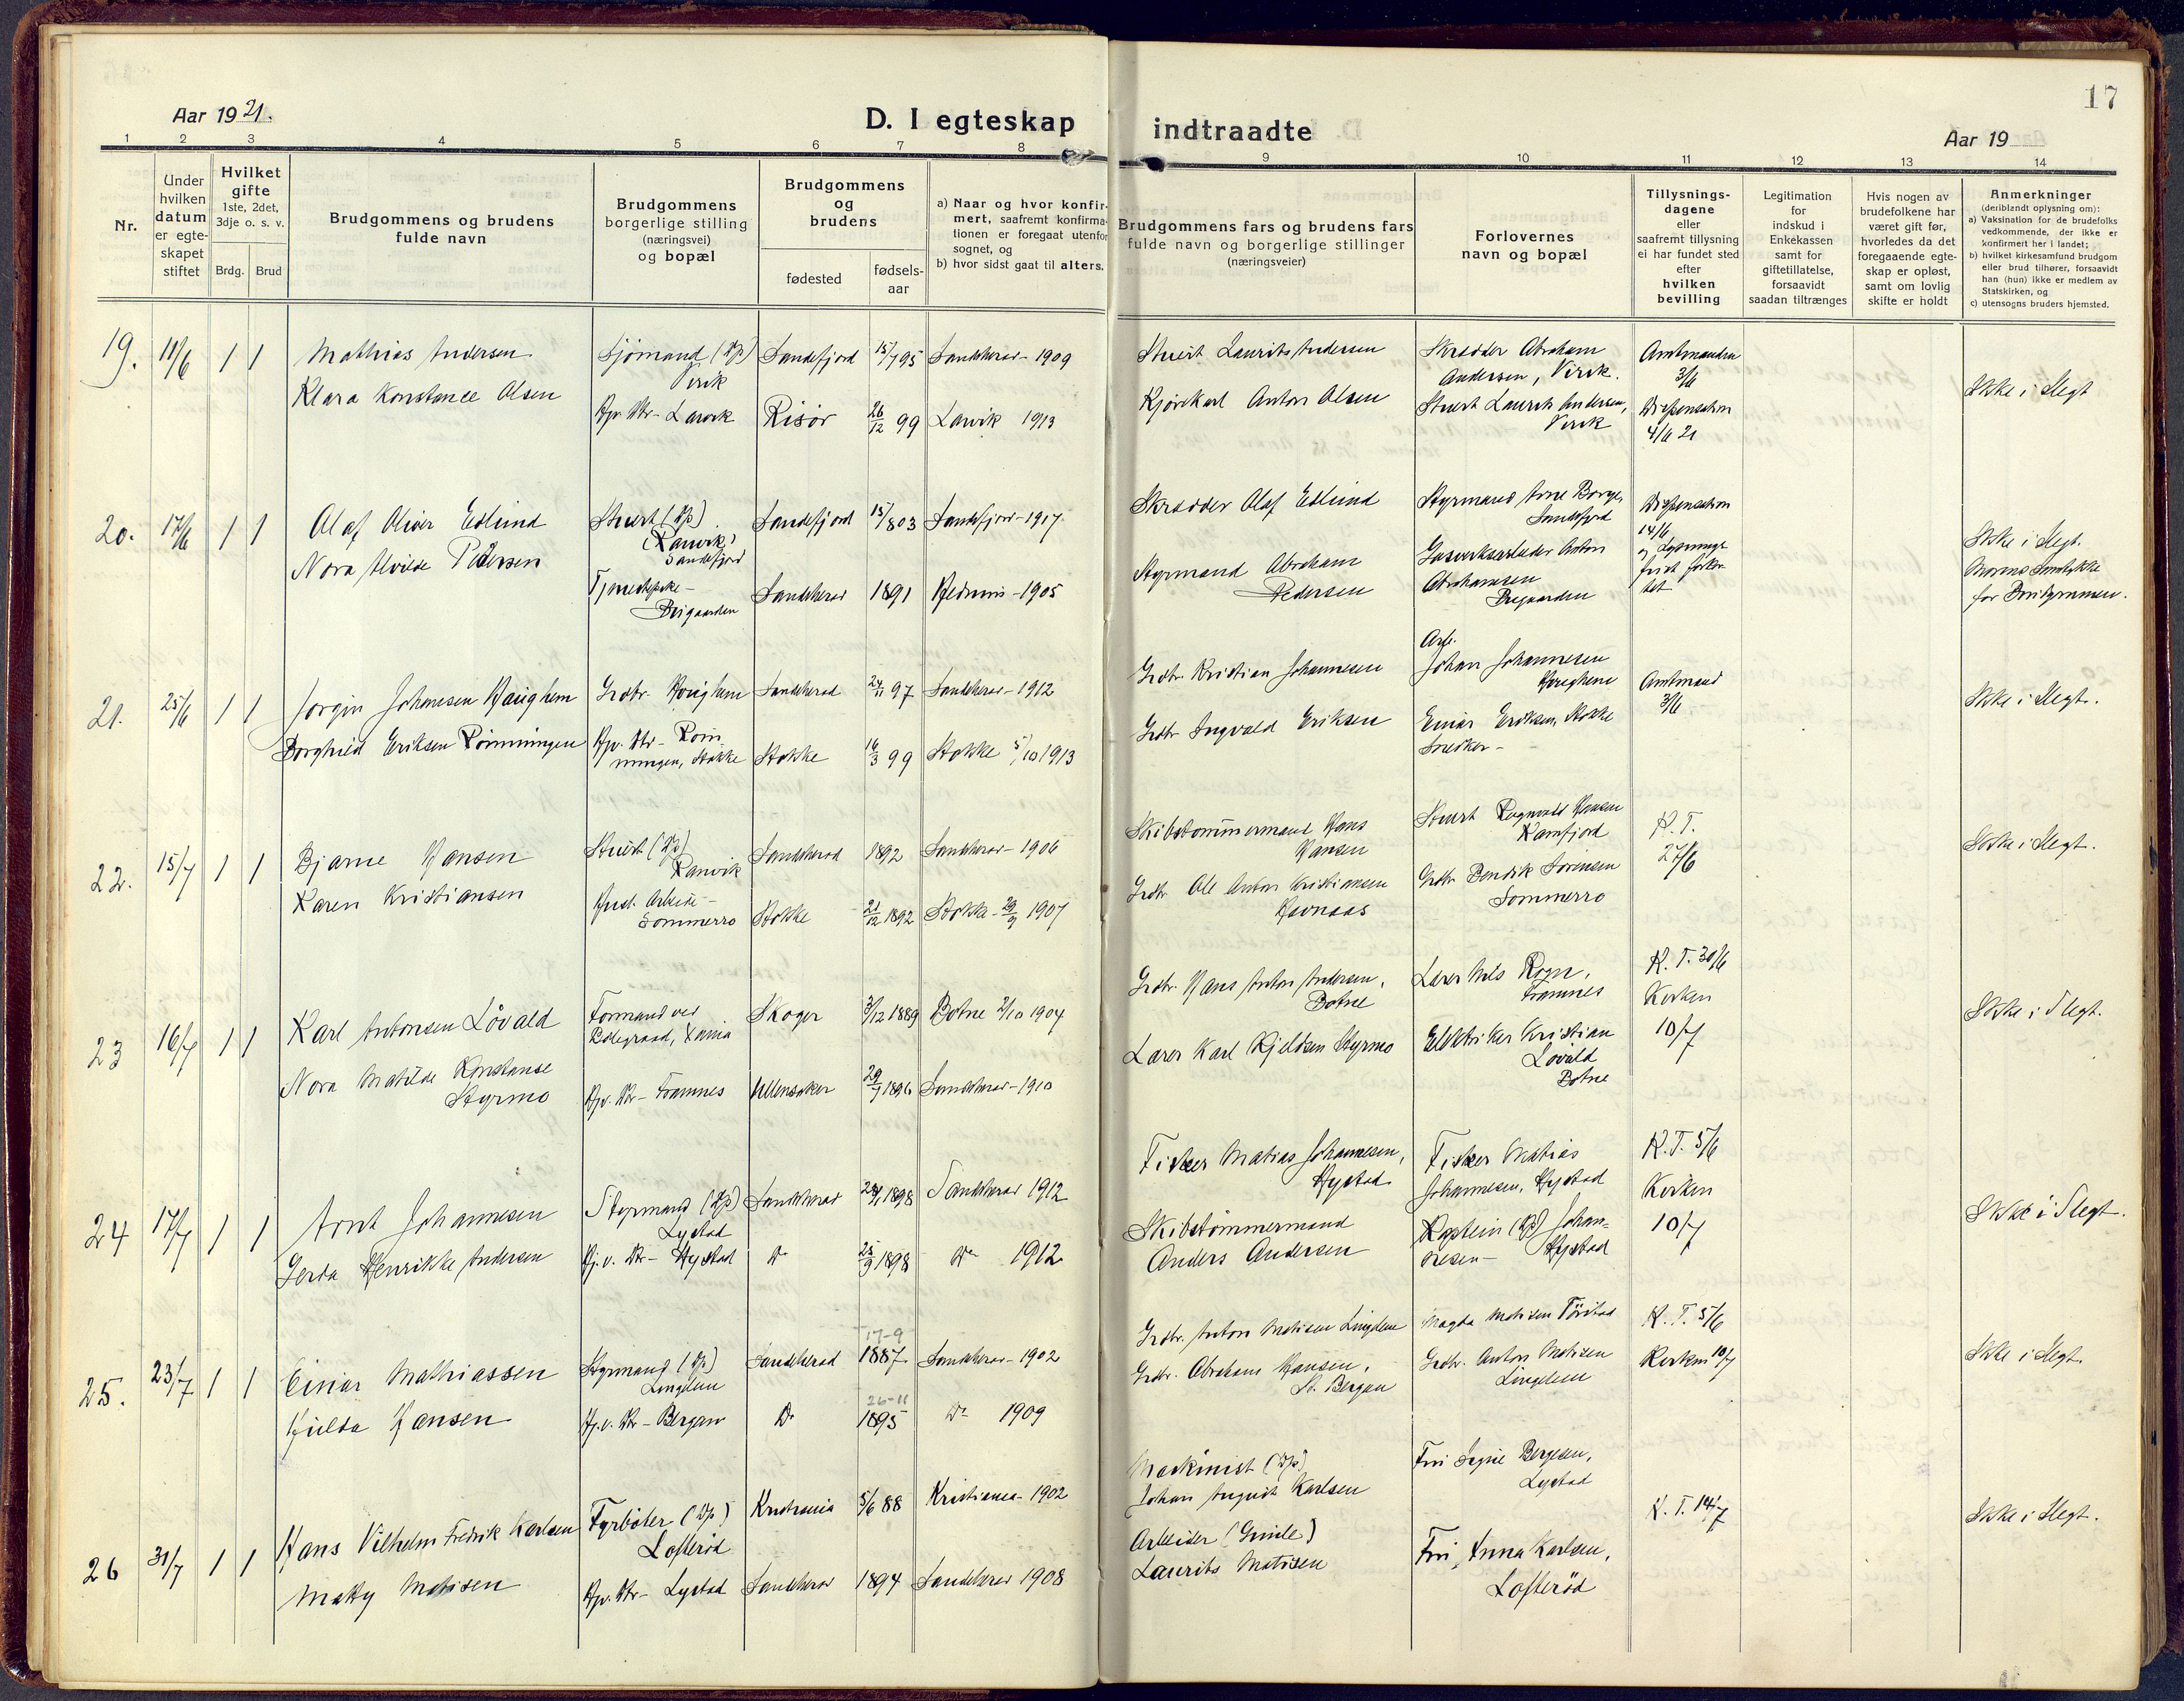 17
Aar 1921.
D. I egteskap indtraadte
Aar 19
1 2 3 4 5 6 7 8 9 10 11 12 13 14
Nr.
Under
hvilken
datum
er egte-
skapet
stiftet
Hvilket
gifte
1ste, 2det,
3dje o. s. v.
Brdg. Brud
Brudgommens og brudens
fulde navn
Brudgommens
borgerlige stilling
(næringsvei)
og bopæl
Brudgommens
og
brudens
fødested
fødsels-
aar
a) Naar og hvor konfir-
mert, saafremt konfirma-
tionen er foregaat utenfor
sognet, og
b) hvor sidst gaat til alters.
Brudgommens fars og brudens fars
fulde navn og borgerlige stillinger
(næringsveier)
Forlovernes
navn og bopæl
Tillysnings-
dagene
eller
saafremt tillysning
ei har fundet sted
efter
hvilken
bevilling
Legitimation
for
indskud i
Enkekassen
samt for
giftetillatelse,
forsaavidt
saadan tiltrænges
Hvis nogen av
brudefolkene har
været gift før,
hvorledes da det
foregaaende egte-
skap er opløst,
samt om lovlig
skifte er holdt
Anmerkninger
(deriblandt oplysning om):
a) Vaksination for de brudefolks
vedkommende, der ikke er
konfirmert her i landet;
b) hvilket kirkesamfund brudgom
eller brud tilhører, forsaavidt
han (hun) ikke er medlem av
Statskirken, og
c) utensogns bruders hjemsted.
19. 11/6 1 1
Mathias Andersen
Klara Konstance Olsen
Sjømand
Virik
Larvik
Sandefjord 15/7 95 Sandeherad - 1909
Risør 26/12 99 Larvik 1913
Stuert Laurits Andersen
Kjørekarl Anton Olsen
Skrædder Abraham
Andersen, Virik.
Stuert Laurits Andersen,
Virik
Amtmanden
3/6
Dispensation
4/6 21
Ikke i Slegt
20. 17/6 1 1
Olaf Oliver Edlund
Nora Alvilde Pedersen
Stuert
(Ranvik)
Sandefjord
Sandefjord 15/8 03 Sandefjord - 1917
Sandeherad 1891 Hedrum - 1905
Skrædder Olaf Edlund
Styrmand Abraham
Pedersen
Styrmand Arne Borge,
Sandefjord
Anton
Abrahamsen
Dispensation
14/6
Ikke i Slegt.
Morens Samtykke
for Brudgommen.
21. 25/6 1 1
Jørgin Johansen Haughem
Borghild Eriksen Rømmingen
Grdbr. Haughem
Røm-
mingen, Stokke
Sandeherad 97 Sandeherad - 1912
Stokke 16/3 99 Stokke 5/10 1913
Grdbr. Kristian Johannesen
Grdbr. Ingvald Eriksen
Arb.
Johan Johannesen
Haughem
Einar Eriksen, Stokke
Snekker -
Amtmand
3/6
Ikke i Slegt.
22. 15/7 1 1
Bjarne Hansen
Karen Kristiansen
Stuert
Ranvik
Sommerro
Sandeherad 1892 Sandeherad - 1906
Stokke 21/12 1892 Stokke - 29/9 1907
Skibstømmermand Hans
Hansen
Grdbr. Ole Anton Kristiansen
Stuert Ragnvald Hansen
Grdbr. Bendik Sørensen
Sommerro
K. T.
27/6
Ikke i Slegt.
23 16/7 1 1
Karl Antonsen Løvald
Nora Matilde Konstanse
Styrmo
Formand ved
Framnes
Skoger 3/12 1889 Botne 2/10 1904
Ullensaker 29/7 1896 Sandeherad - 1910
Grdbr. Hans Anton Andersen,
Botne
Lærer Karl Kjeldsen Styrmo
Lærer Nils Rogn,
Framnes
Elektriker Kristian
Løvald
Botne
K. T. 30/6
Kirken
10/7
Ikke i Slegt.
24 17/7 1 1
Arnt Johannesen
Gerda Henrikke Andersen
Styrmand
Lystad
Hystad
Sandeherad 1898 Sandeherad 1912
Do 25/9 1898 Do 1912
Fisker Matias Johannesen,
Hystad
Skibstømmermand
Anders Andersen
Fisker Matias
Johannesen, Hystad
Johan-
nesen - Hystad
K. T. 5/6
Kirken
10/7
Ikke i Slegt.
25. 23/7 1 1
Einar Mathiassen
Hilda Hansen
Styrmand
Lingelem
Bergan
17-9
Sandeherad 1887 Sandeherad - 1902
26-11
Do 1895 Do 1909
Grdbr. Anton Matisen Lingelem
Grdbr. Abraham Hansen,
St. Bergan
Magda Matisen
Grdbr. Anton Matisen
Lingelem
K. T. 5/6
Kirken 10/7
Ikke i Slegt.
26 31/7 1 1
Hans Vilhelm Fredrik Karlsen
Matty Matisen
Fyrbøter
Lofterød
Lystad
Kristiania 5/6 88 Kristiania - 1902
Sandeherad 1894 Sandeherad 1908
Maskinist
Johan August Karlsen
Arbeider
Laurits Matisen
Fru Signe Bergesen,
Lystad
Fru Anna Karlsen,
Lofterød
K. T. 14/7
Ikke i Slegt.